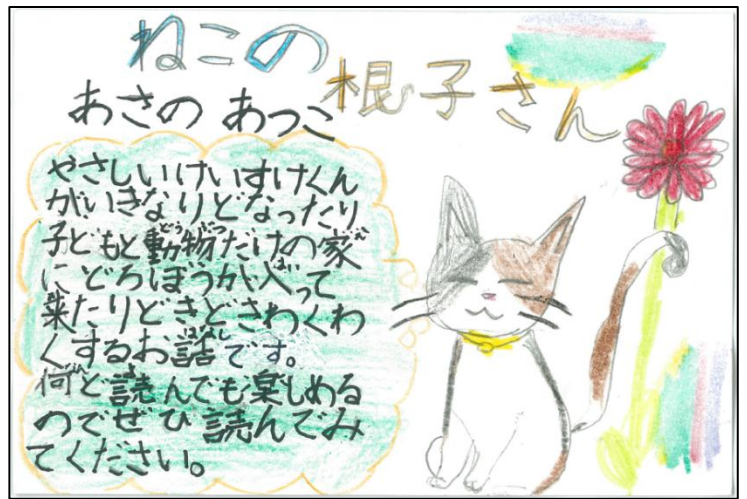 ねこの
根子さん
あさの あつこ
やさしいけいすけくん
がいきなりどなったり
子どもと動物だけの家
にどろぼうが入って
来たりどきどきわくわ
くするお話です。
何ど読んでも楽しめる
のでぜひ読んでみ
てください。